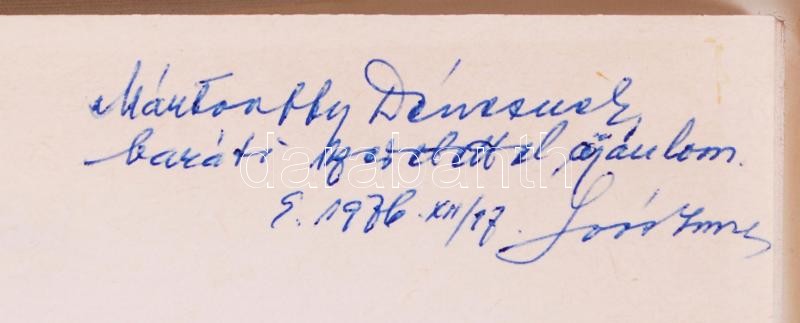 Mártonffy Dénesnek
baráti szeretettel ajánlom.
E. 1976. XII/17. Soós Imre
darabanth